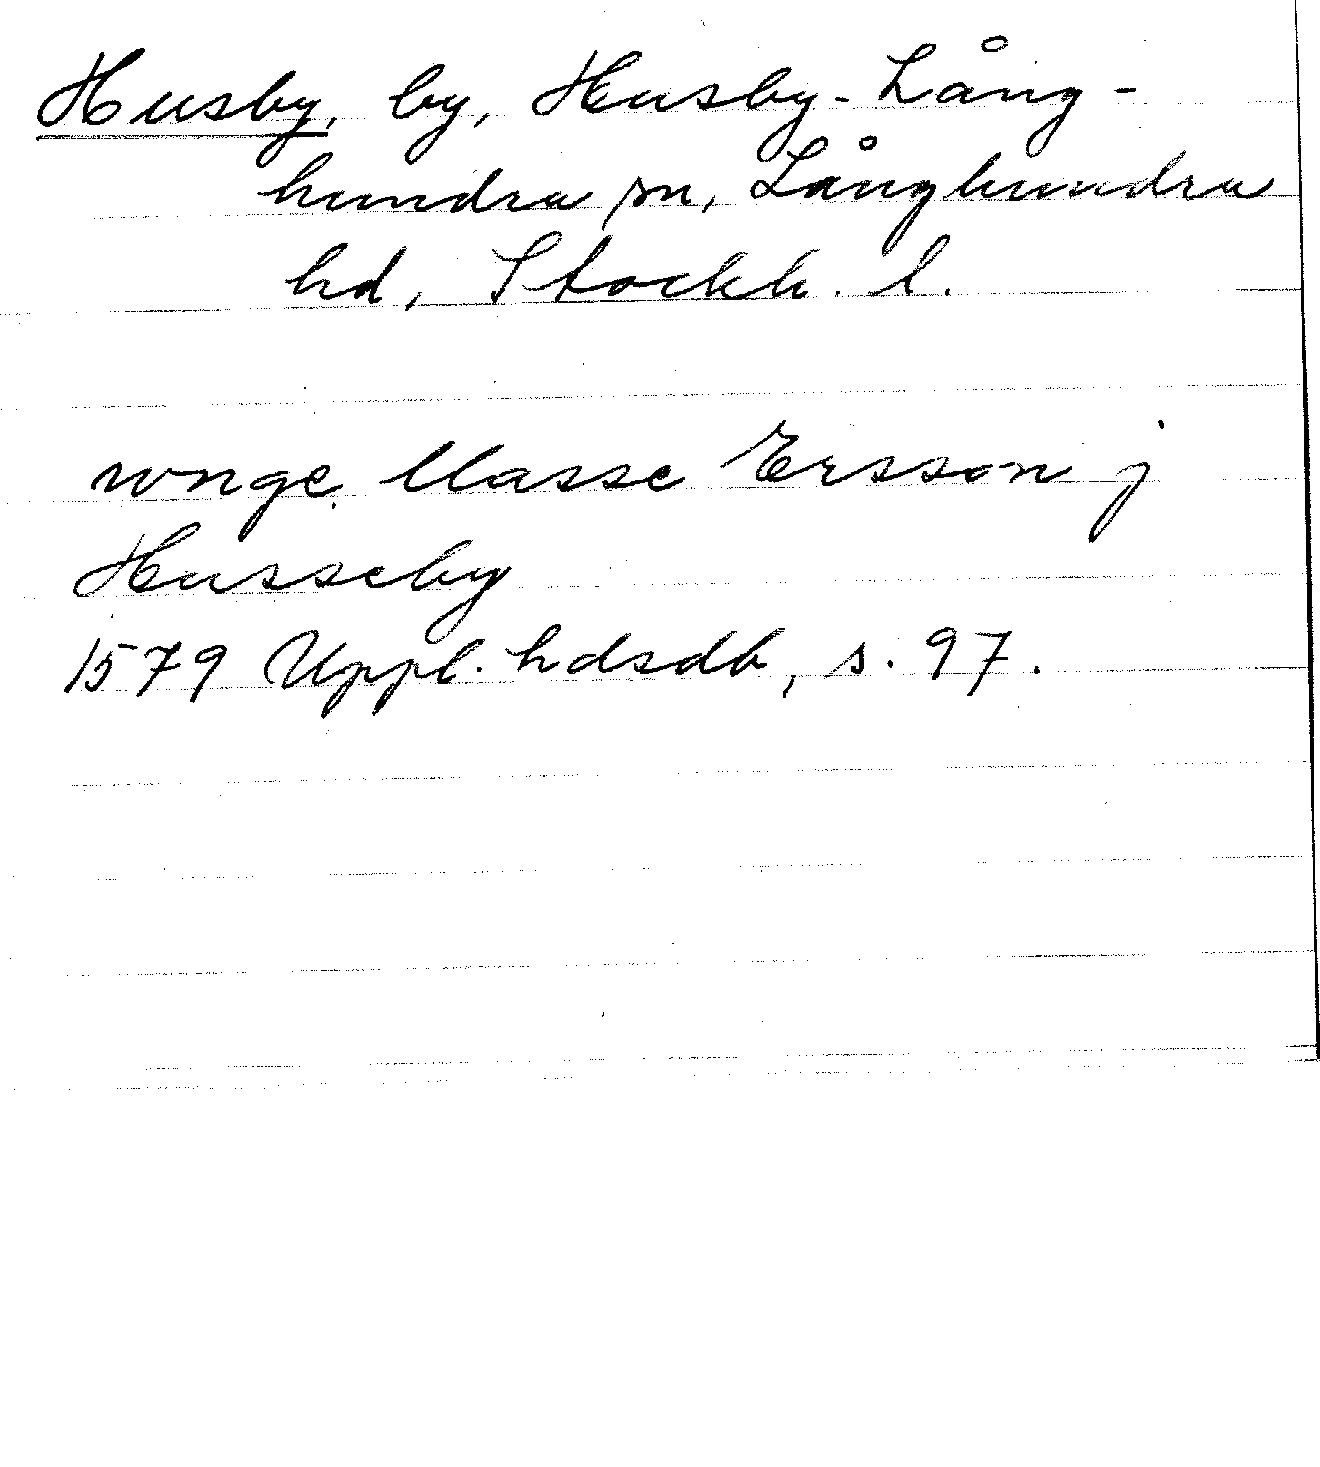 Husby, by, Husby-Lång-
hundra sn, Långhundra
hd, Stockh. l.
wnge Masse Ersson j
Husseby
1579 Uppl. hdsdb, s. 97.